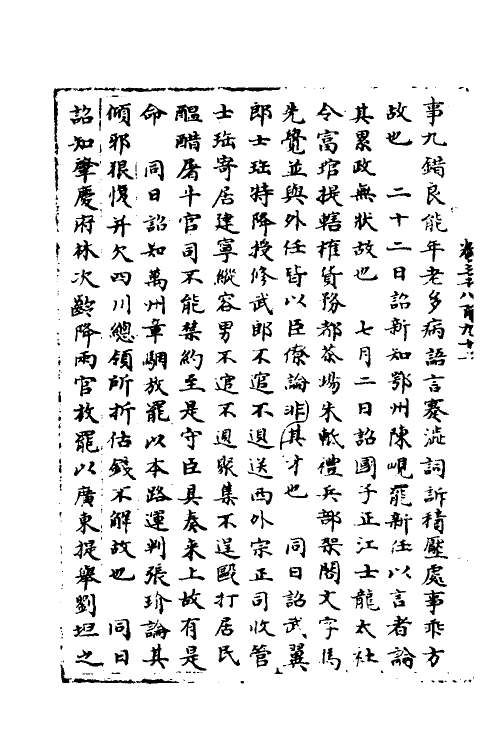 事九錯良能年老多病語言蹇澁詞訴積壓處事乖方
故也　二十二日詔新知鄂州陳峴罷新任以言者論
其累政無狀故也　七月二日詔國子正江士龍太社
令富琯提轄榷貨務都茶場朱軝禮兵部架閣文字馮
先覺並與外任皆以臣僚論非其才也　同日詔武翼
郎士㻂特降授修武郎不𢓭不𢓭送西外宗正司收管
士㻂寄居建寧縱容男不𢓭不迥聚集不逞毆打居民
醞醋屠牛官司不能禁約至是守臣具奏來上故有是
命　同日詔知萬州章駉放罷以本路運判張玠論其
傾邪狠愎并欠四川總領所折估錢不解故也　同日
詔知肇慶府林次齡降兩官放罷以廣東提舉劉坦之